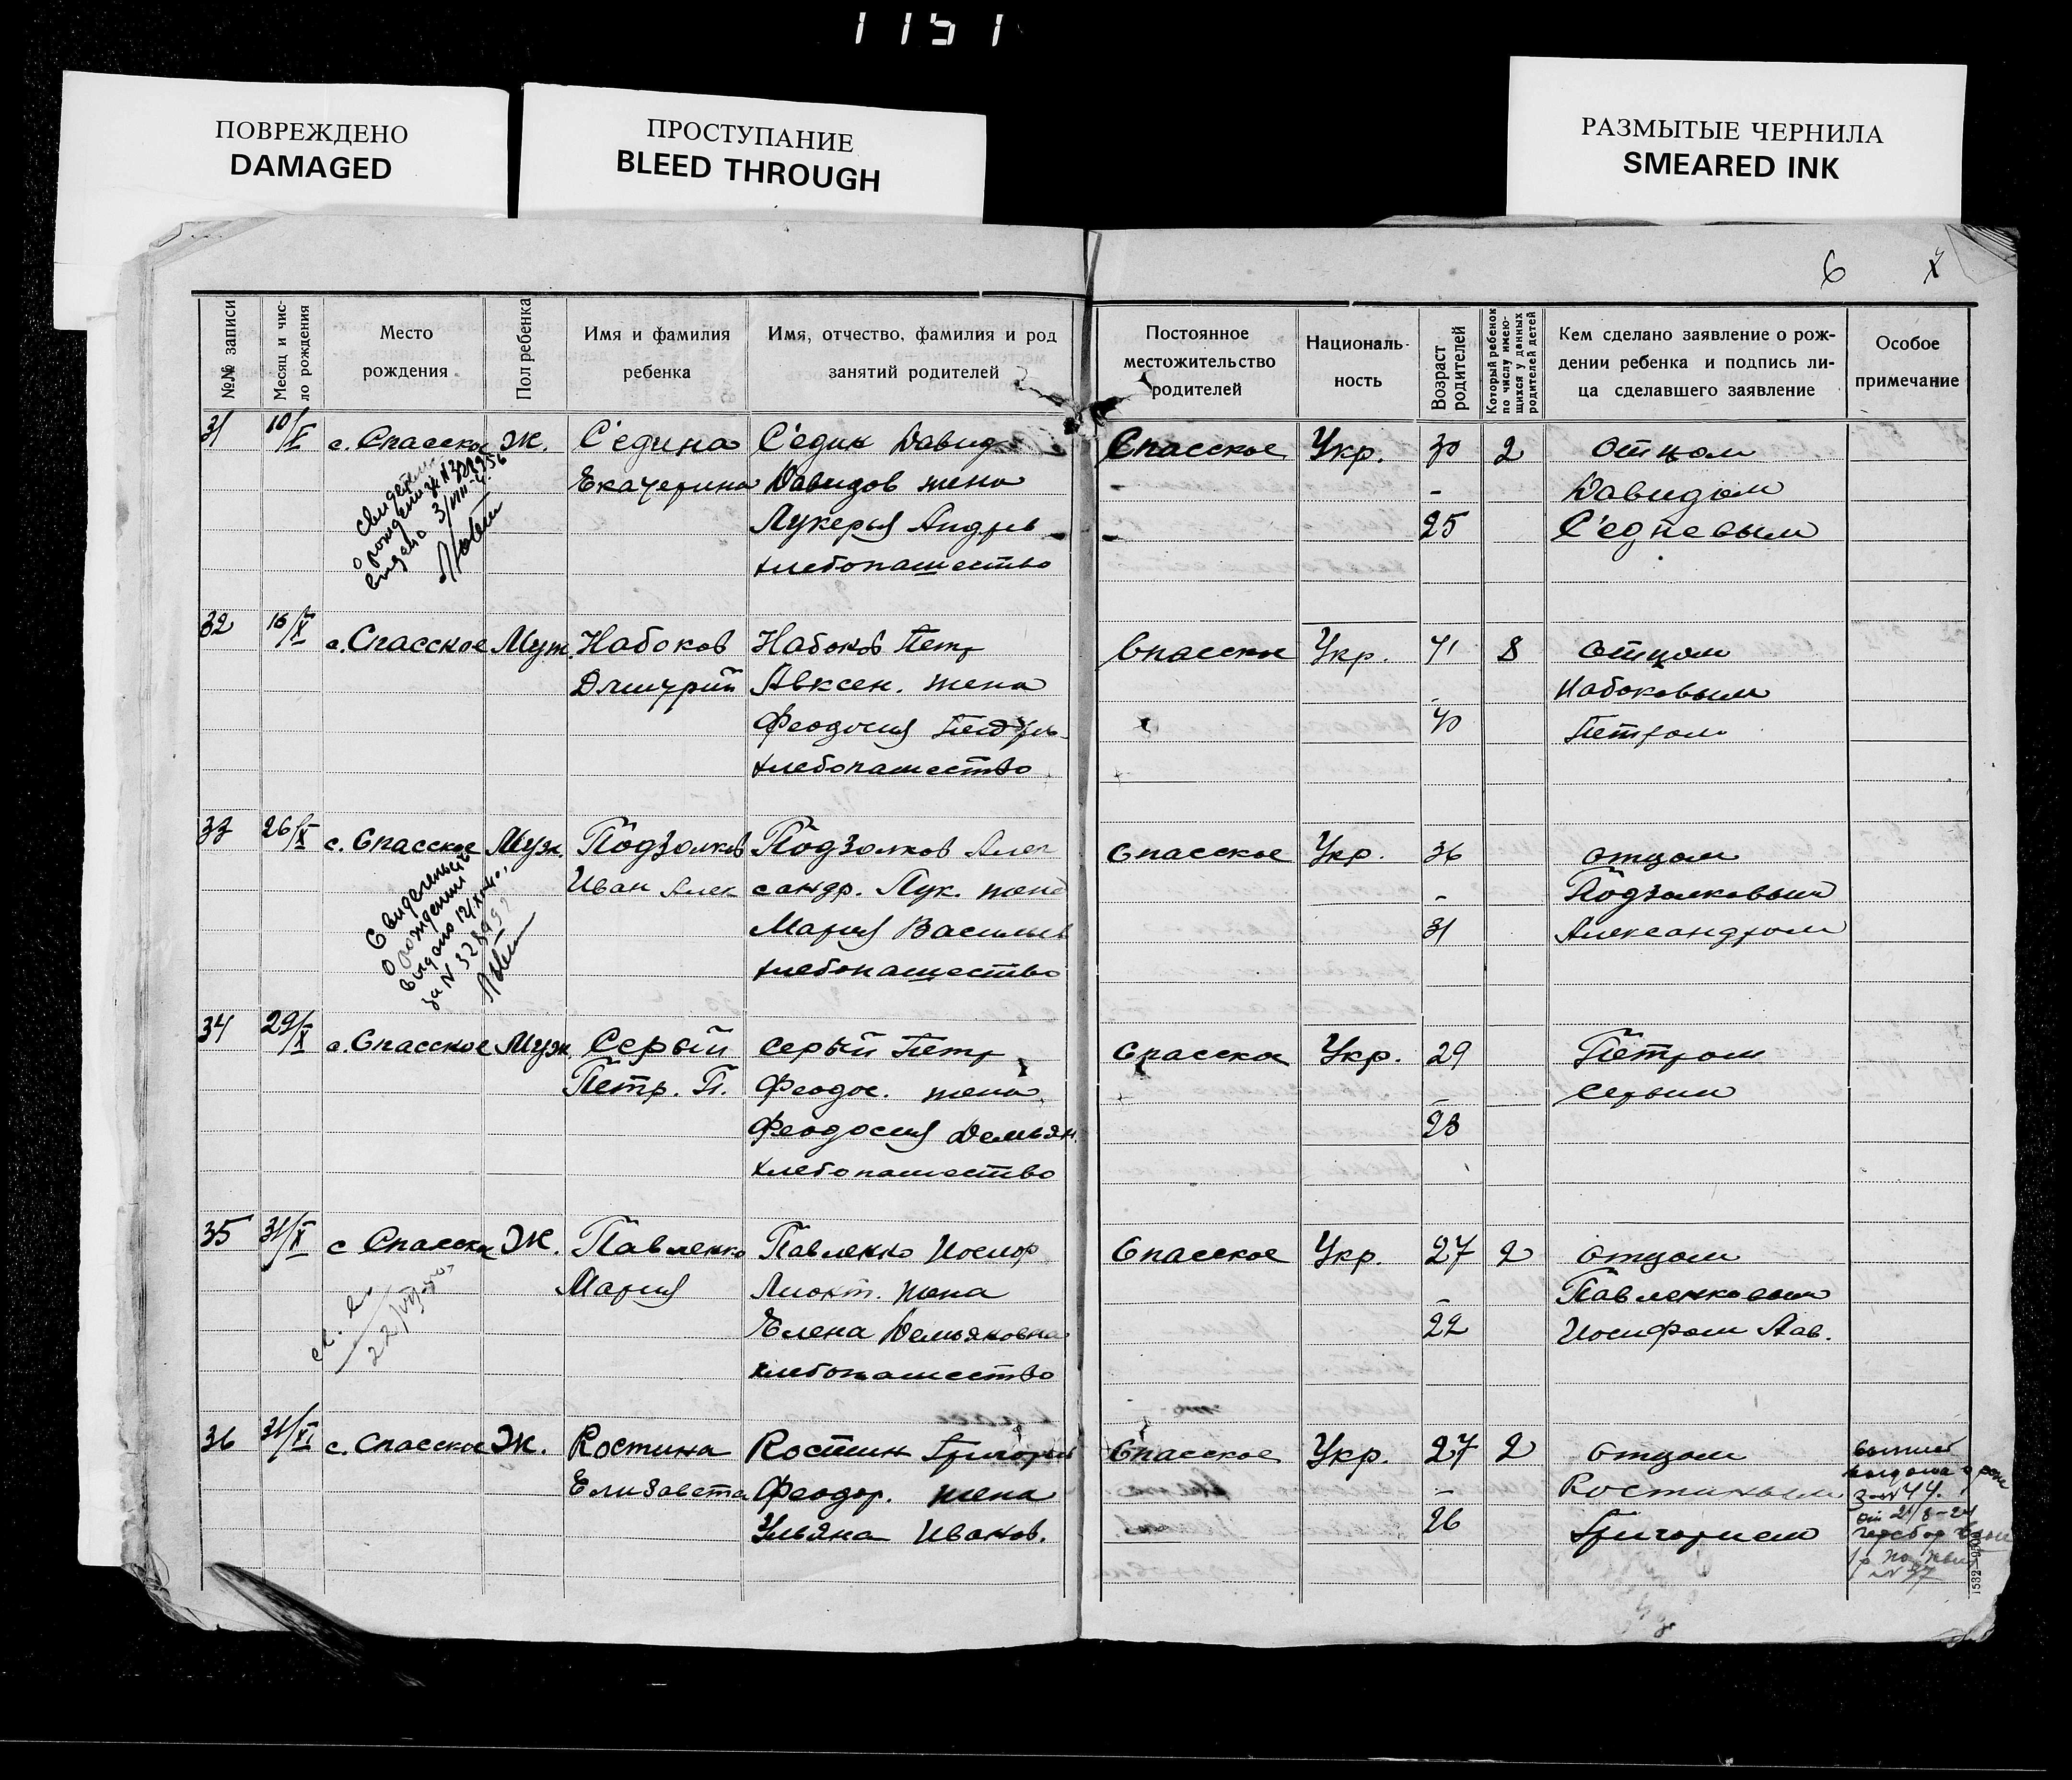 1151
ПОВРЕЖДЕНО
DAMAGED
ПРОСТУПАНИЕ
BLEED THROUGH
РАЗМЫТЫЕ ЧЕРНИЛА
SMEARED INK
6
№№ записи
Месяц и чис-
ло рождения
Место
рождения
Пол ребенка
Имя и фамилия
ребенка
Имя, отчество, фамилия и род
занятий родителей
Постоянное
местожительство
родителей
Националь-
ность
Возраст
родителей
Который ребенок
по числу имею-
щихся у данных
родителей детей
Кем сделано заявление о рож-
дении ребенка и подпись ли-
ца сделавшего заявление
Особое
примечание
31 10/X с. Спасское Ж. Седина Седин Давид Спасское Укр. 30 2 отцом
Екатерина Давидов жена - Давидом
Лукерья Андрев 25 Седневым
хлебопашество
о рождении
выдано
32 16/X с. Спасское Муж. Набоков Набоков Петр Спасское Укр. 41 8 отцом
Дмитрий Авксен. жена - Набоковым
Феодосия 40 Петром
хлебопашество
33 26/X с. Спасское Муж. Подзолков Подзолков Алек Спасское Укр. 36 отцом
Иван Алек сандр. Лук. жена - Подзолковым
Мария Васильев 31 Александром
хлебопашество
Свидетельст
о рождении
выдано
за №
34 29/X с. Спасское Муж. Серый Серый Петр Спасское Укр. 29 Петром
Петр. П. Феодос. жена - Серым
Феодосия Демьян. 23
хлебопашество
35 31/X с Спасское Ж. Павленко Павленко Иосиф Спасское Укр. 27 2 отцом
Мария жена - Павленковым
Елена Демьяновна 22 Иосифом Пав.
хлебопашество
36 31/XI с. Спасское Ж. Костина Костин Григорий Спасское Укр. 27 2 отцом
Елизавета Феодор. жена - Костиным
Ульяна Иванов. 26 Григорием
1532